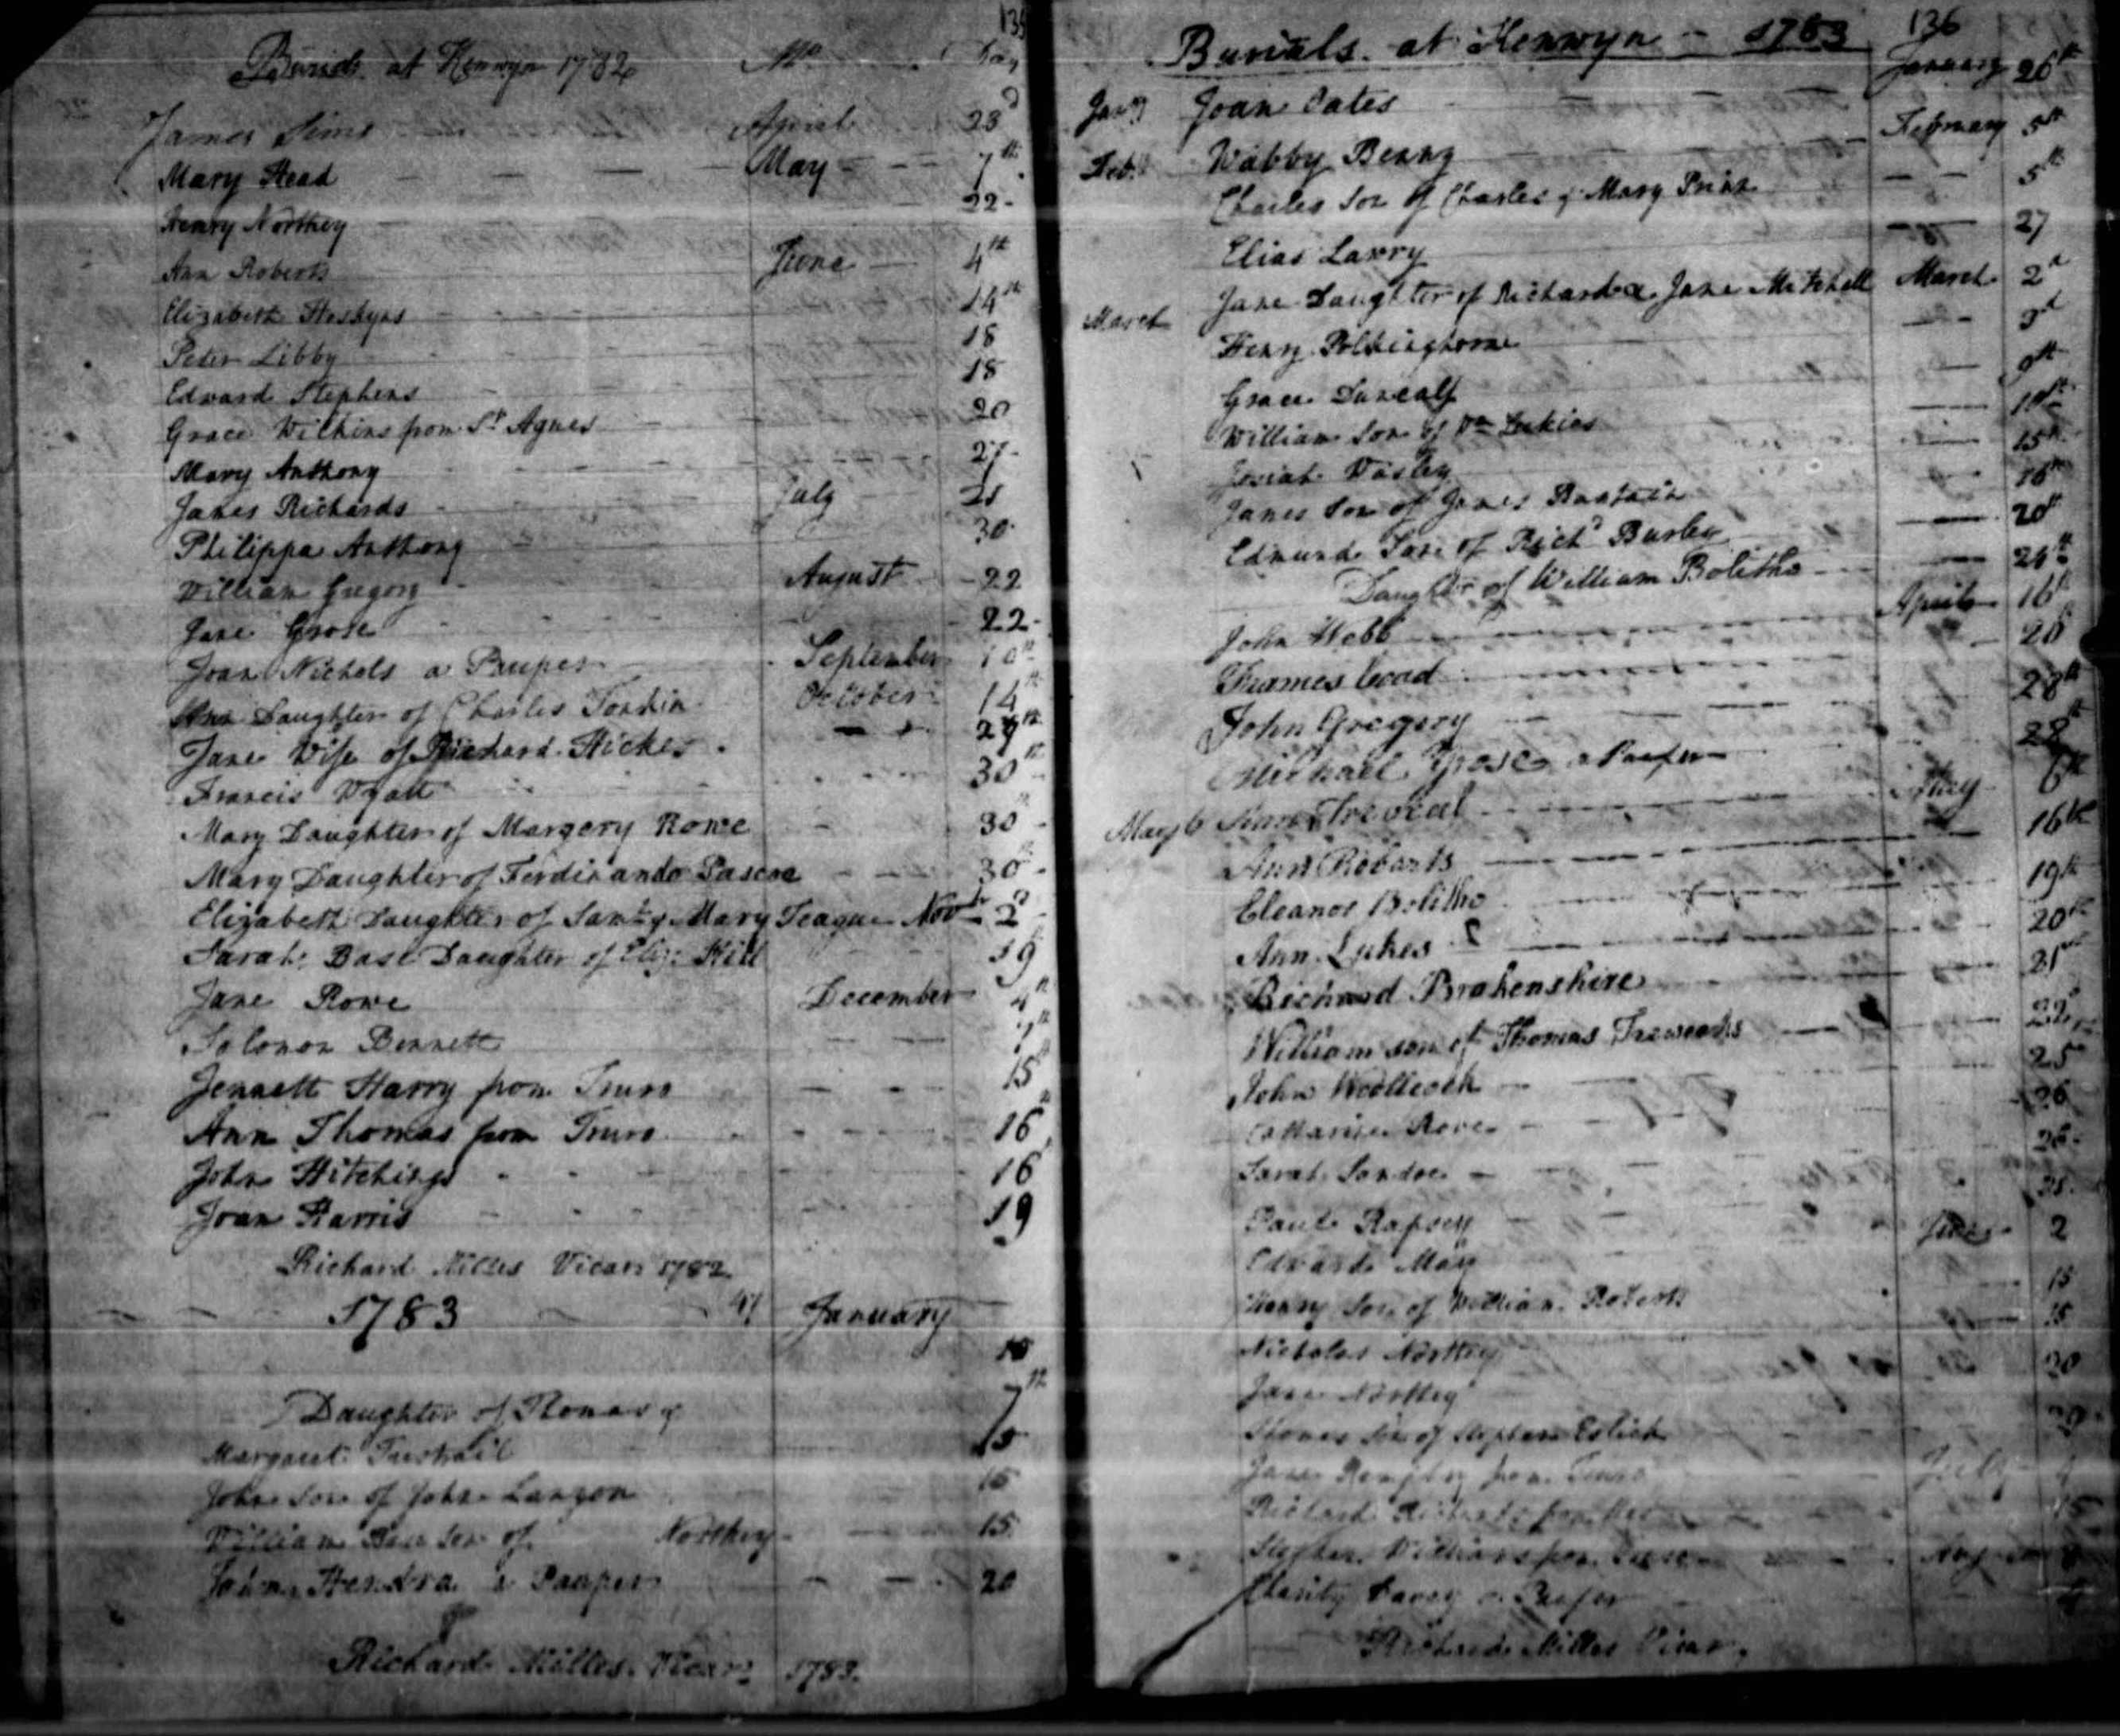 135
Burials at Kenwyn 1782 Mo Day
James Sims April 23d
Mary Head May 7th
Henry Northey 22
Ann Roberts June 4th
Elizabeth Hoskyns 14th
Peter Libby 18
Edward Stephens 18
Grace Wilkins from St Agnes 20
Mary Anthony 27
James Richards July 21
Philippa Anthony 30
William Gregory August 22
Jane Grose 22
Joan Nichols a Pauper September 10th
Ann Daughter of Charles Tonkin October 14th
Jane Wife of Richard Hickes 29th
Francis Wyatt 30th
Mary Daughter of Margery Rowe 30th
Mary Daughter of Ferdinando Pascoe 30th
Elizabeth Daughter of Saml & Mary Teague Novbr 2d
Sarah Base Daughter of Eliz: Hill 19
Jane Rowe December 4th
Solomon Bennett 7th
Jennett Harry from Truro 15th
Ann Thomas from Truro 16
John Hitchings 16
Joan Harris 19
Richard Milles Vicar 1782
1783 January
Daughter of Thomas & 7th
Margaret
John Son of John Langon 15
William Base Son of Northey 15
Hendra a Pauper 20
Richard Milles Vicar 1783.
136
Burials at Kenwyn - 1783
Jany Joan Oates January 26th
Feby Wabby Benny February 5th
Charles Son of Charles & Mary Prinn 5th
Elias Lawry 27
Jane Daughter of Richard & Jane Mitchell March 2d
March Henry Polkinghorne 3d
Grace Duncalf 9th
William Son of Wm Lukies
Josiah Vasley 15th
James Son of James 16th
Edmund Son of Richd Burley 20th
Daughter of William Bolitho 24th
John Webb April 16th
Coad 26
John Gregory 28th
Michael Grose a Pauper 28th
May 6 Ann Treveal May 6th
Ann Robarts 16th
Eleanor Bolitho 19th
Ann Lukes 20th
Richard Brokenshire 21st
William son of Thomas 22
John Woollcock 25
Catharine Rowe 26
Sarah Sandoe 26
Paul Rapsey
Edward May June 2
Henry Son of William Roberts 15
Nicholas Northey 15
Jane Northey 20
Thomas Son of Stephen
Jane from Truro July
Richard Richards from
Stephen Williams from
Charity Davey a Pauper
Richard Milles Vicar.